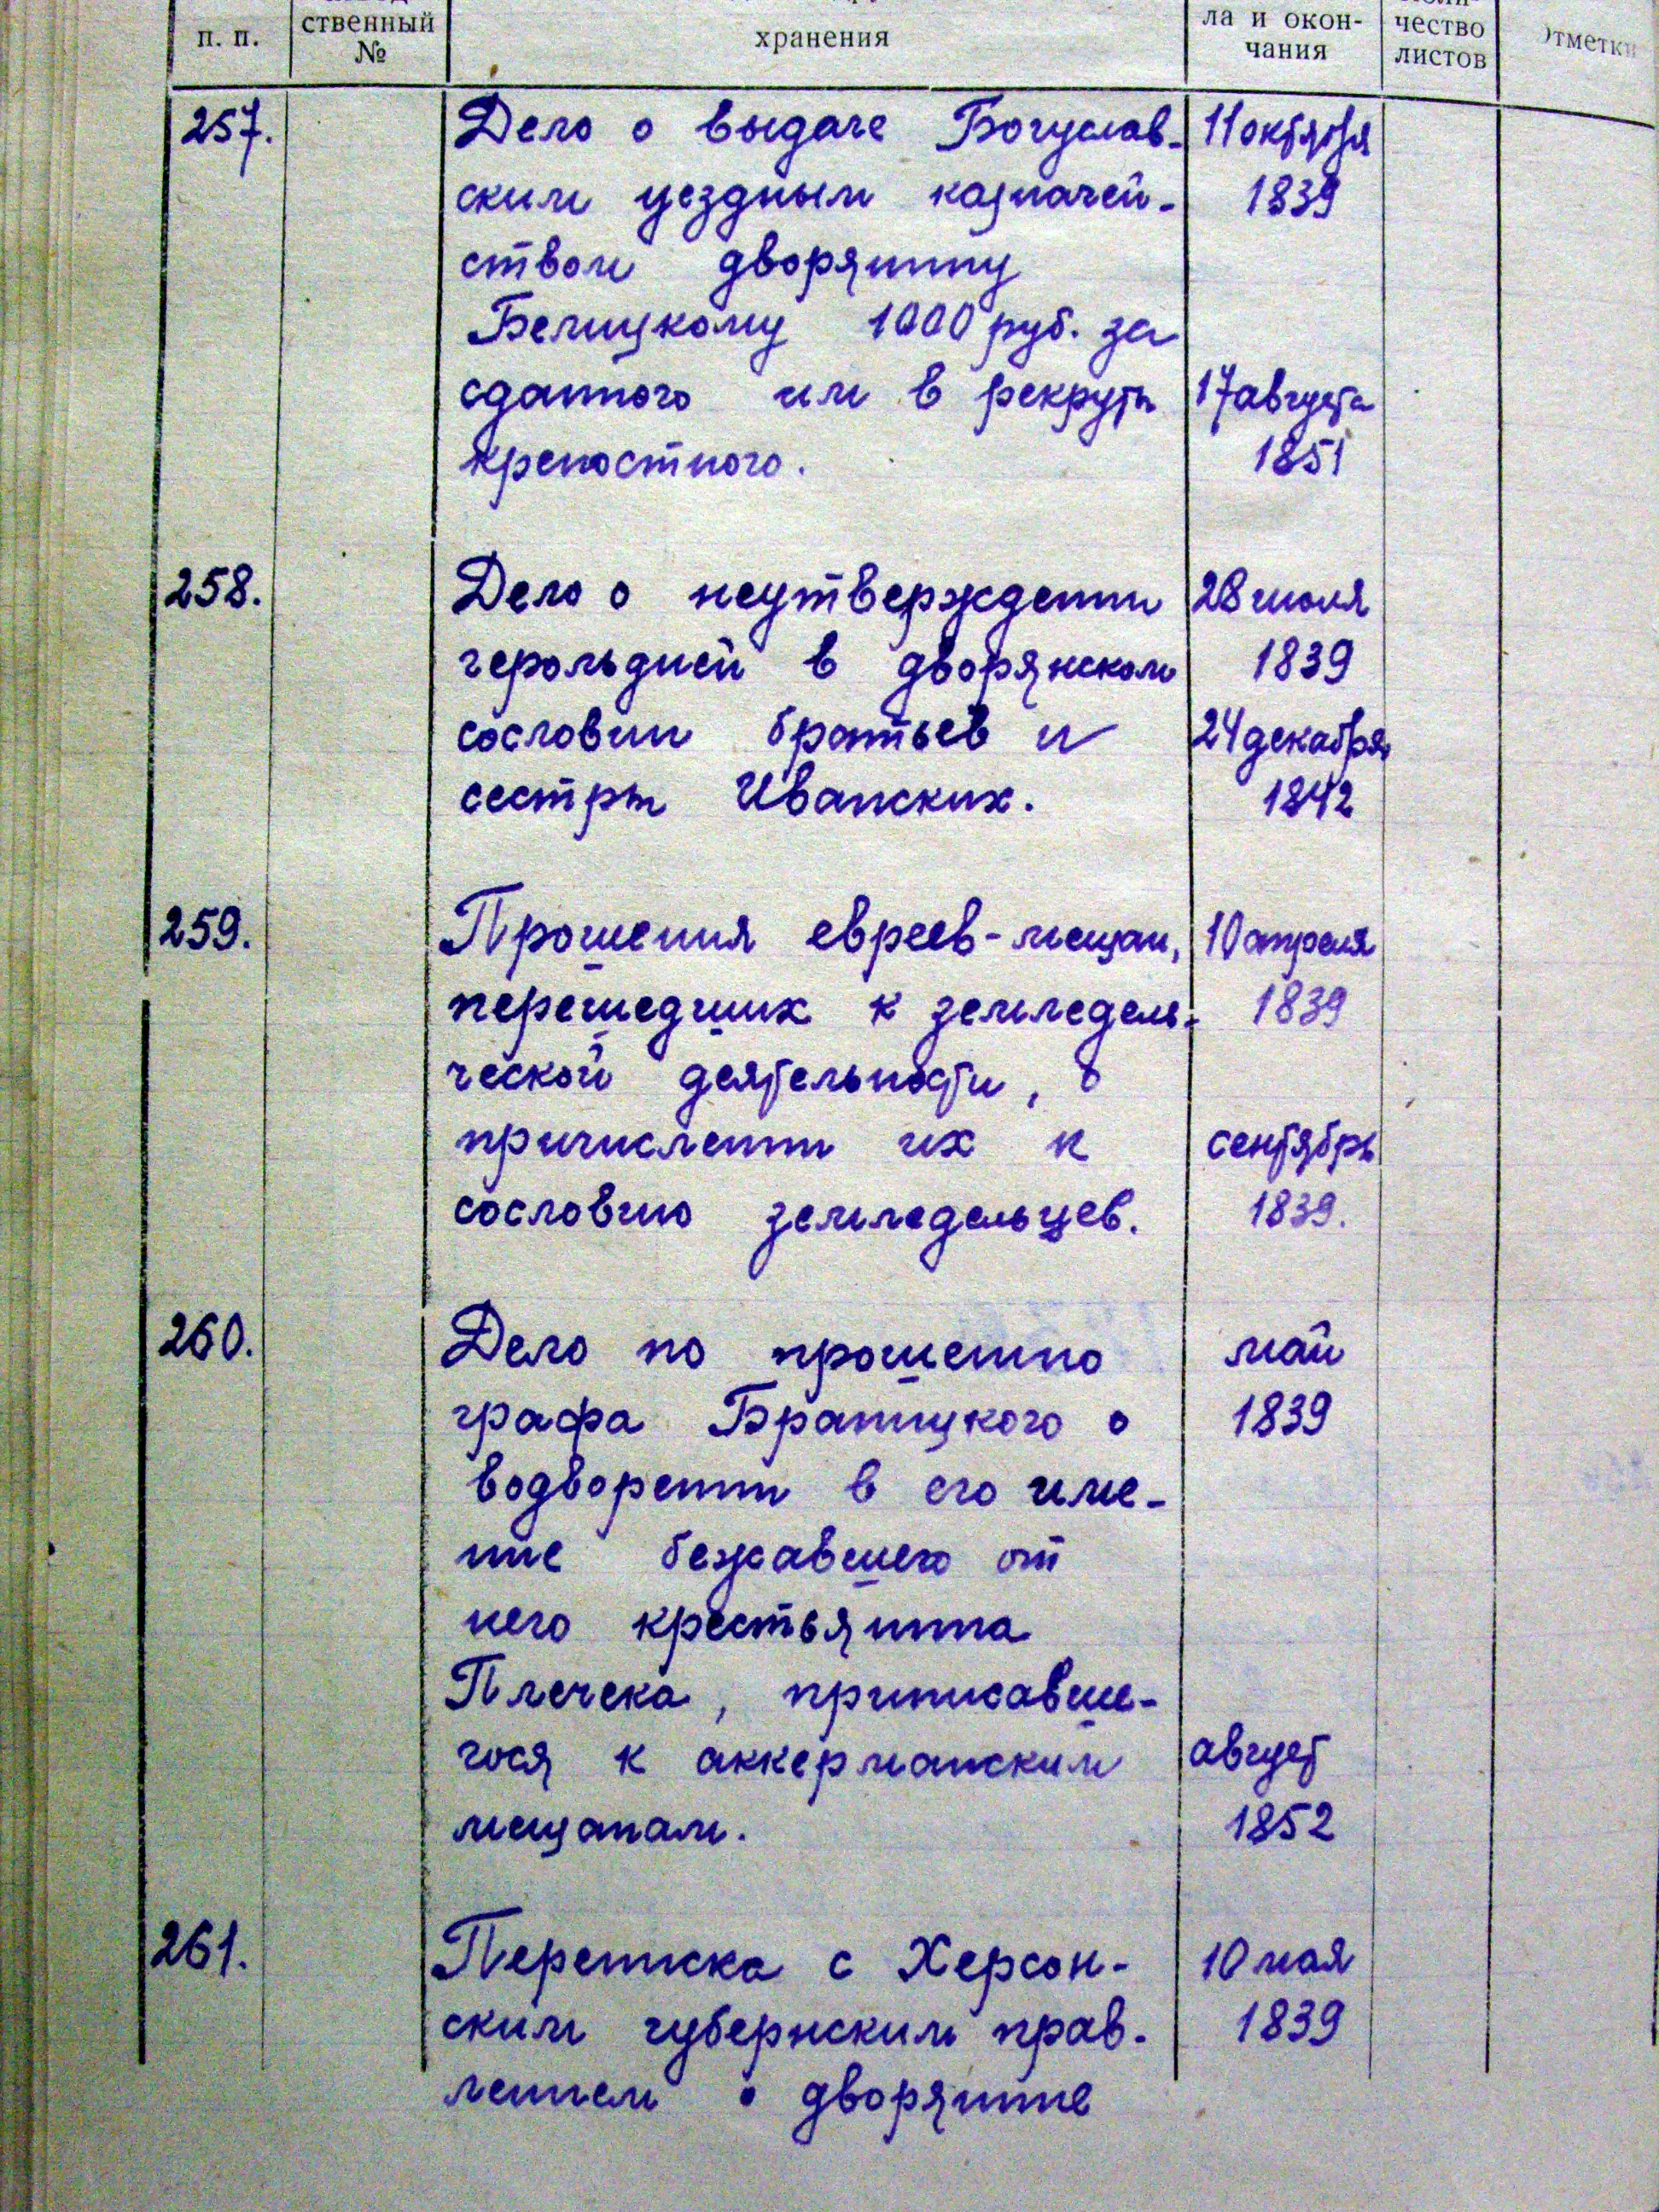 п. п.
ственный
№
хранения
ла и окон-
чания
чество
листов
Отметки
257.
Дело о выдаче Богуслав-
ским уездным казначей-
ством дворянину
Белицкому 1000 руб. за
сданного им в рекруты
крепостного.
11 октября
1839
17 августа
1851
258.
Дело о неутверждении
герольдией в дворянском
сословии братьев и
сестры Иванских.
28 июля
1839
24 декабря
1842
259.
Прошения евреев-мещан,
перешедших к земледель-
ческой деятельности, о
причислении их к
сословию земледельцев.
10 апреля
1839
сентябрь
1839.
260.
Дело по прошению
графа Браницкого о
водворении в его име-
ние бежавшего от
него крестьянина
Плечека, приписавше-
гося к аккерманским
мещанам.
май
1839
август
1852
261.
Переписка с Херсон-
ским губернским прав-
лением о дворянине
10 мая
1839